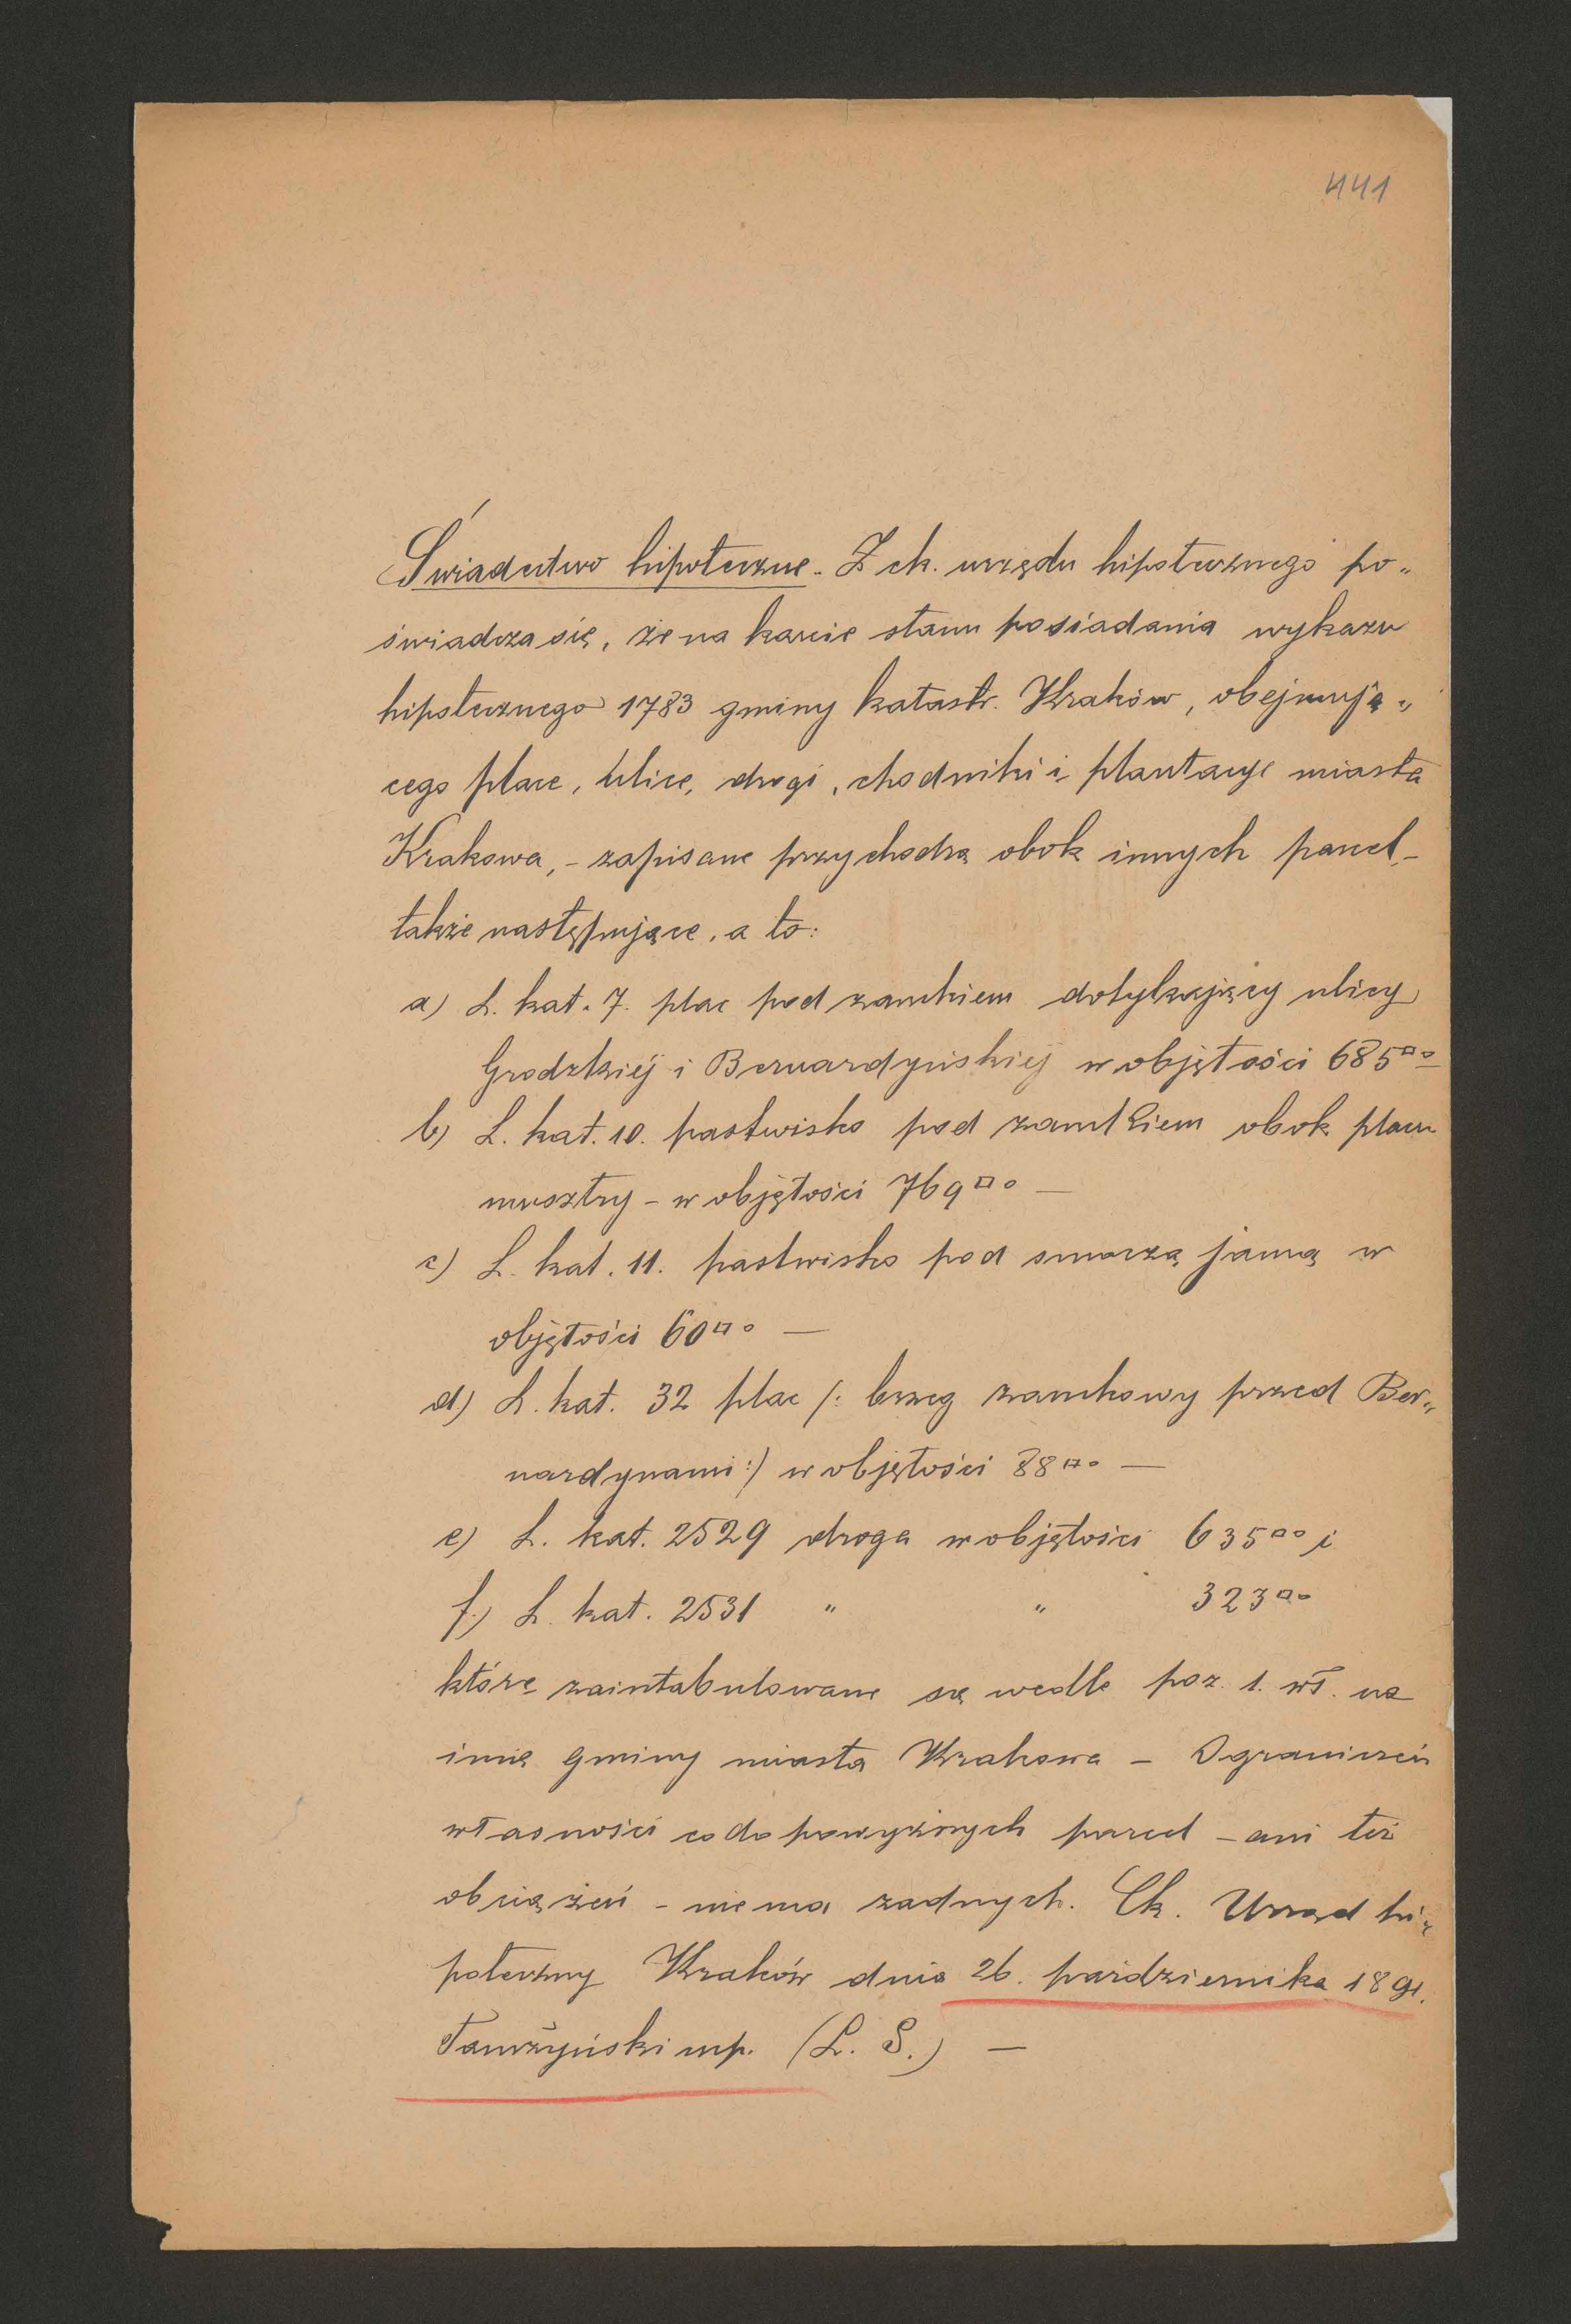 441
Świadectwo hipoteczne. Z ck. urzędu hipotecznego po„
świadcza się, że na karcie stanu posiadania wykazu
hipotecznego 1783 gminy katastr. Kraków, obejmują„
cego place, ulice, drogi, chodniki i plantacye miasta
Krakowa, – zapisane przychodzą obok innych parcel, –
także następujące, a to:
a) L. kat. 7. plac pod zamkiem dotykający ulicy
Grodzkiéj i Bernardyńskiéj w objętości 685□°–
b) L. kat. 10. pastwisko pod zamkiem obok placu
musztry – w objętości 769□° –
c) L. kat. 11. pastwisko pod smoczą jamą w
objętości 60□° –
d) L. kat. 32 plac /: brzeg zamkowy przed Ber„
nardynami :/ w objętości 88□° –
e) L. kat. 2529 droga w objętości 635□° i
f.) L. kat. 2531 " " 323□°
które zaintabulowane są wedle poz. 1. wł. na
imię gminy miasta Krakowa – Ograniczeń
własności co do powyższych parcel – ani też
obciążeń – niema żadnych. Ck. Urząd hi„
poteczny Kraków dnia 26. października 1891.
Tamżyński mp. (L. S.) –